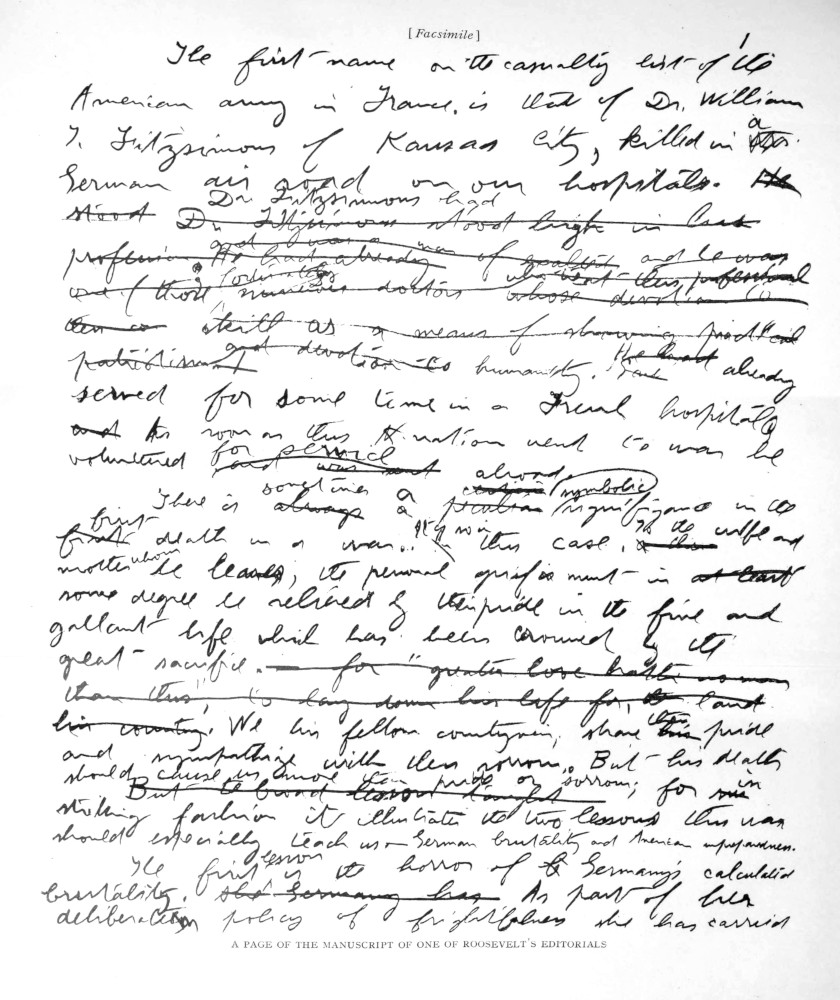 [Facsimile]
1
The first name on the casualty list of the
American army in France, is that of Dr. William
T. Fitzsimons of Kansas City, killed in a
German air raid on our hospitals. He
Dr Fitzsimmons had
stood Dr Fitzsimmons stood high in his
and was a man
profession He had already of and he was
fortunately who devotion this professional
one of those numerous doctors whose devotion to
skill as a means of showing practical
and devotion to
patriotism humanity. He had already
served for some time in a French hospital
and As soon as this nation went to war he
for service
volunteered and was sent abroad
sometimes a symbolic
There is always a peculiar significance in the
first
first death in a war. It is so in this case. To the wife and
whom
mother he leaves, the personal grief must in at least
some degree be relieved by their pride in the fine and
gallant life which has been crowned by the
great sacrifice. for "greater love hath no man
than this, to lay down his life for, land
his country. We his fellow countrymen, share their his pride
and sympathize with their sorrow. But his death
should cause us more than pride or sorrow; for in
But the broad lesson taught
striking fashion it illustrates the two lessons this war
should especially teach us – German brutality and American unpreparedness.
lesson
The first is the horror of Germany's calculated
brutality. she Germany has As part of her
deliberate policy of frightfulness she has carried
A PAGE OF THE MANUSCRIPT OF ONE OF ROOSEVELT'S EDITORIALS